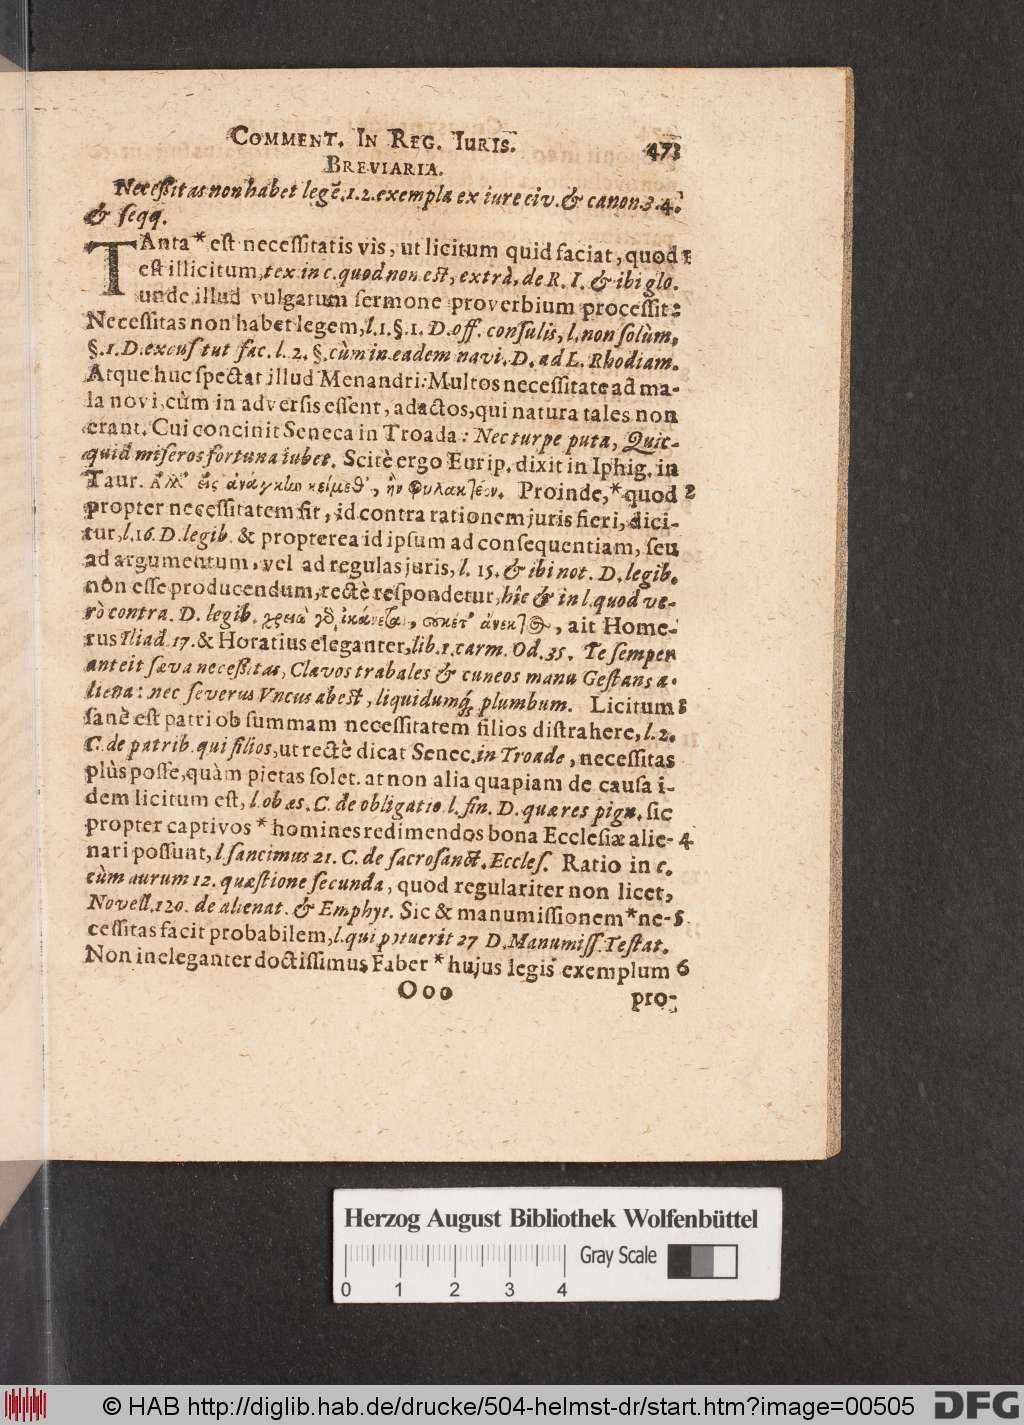 COMMENT. IN REG. IURIS. 473
BREVIARIA.
Necessitas non habet legẽ. 1. 2. exempla ex iure civ. & canon. 3. 4.
& seqq.
TAnta * est necessitatis vis, ut licitum quid faciat, quod 1
est illicitum, tex. in c. quod non est, extrà, de R. I. & ibi glo.
unde illud vulgatum sermone proverbium processit:
Necessitas non habet legem, l. 1. §. 1. D. off. consulis, l. non solùm,
§. 1. D. excus tut fac. l. 2. §. cùm in eadem navi. D. ad L. Rhodiam.
Atque huc spectat illud Menandri: Multos necessitate ad ma-
la novi, cùm in adversis essent, adactos, qui natura tales non
erant. Cui concinit Seneca in Troada: Nec turpe puta, Quic-
quid miseros fortuna iubet. Scitè ergo Eurip. dixit in Iphig. in
Taur. Ἀλλ' εἰς ἀνάγκlω κείμεθ', ἣν φυλακτέον. Proinde, * quod 2
propter necessitatem fit, id contra rationem juris fieri, dici-
tur, l. 16. D. legib. & propterea id ipsum ad consequentiam, seu
ad argumentum, vel ad regulas juris, l. 15. & ibi not. D. legib.
nõn esse producendum, rectè respondetur, hîc & in l. quod ve-
rò contra. D. legib. ait Home-
rus Iliad. 17. & Horatius eleganter, lib. 1. carm. Od. 35. Te semper
anteit sæva necessitas, Clavos trabales & cuneos manu Gestans a-
liena: nec severus Vncus abest, liquidumq; plumbum. Licitum 3
sanè est patri ob summam necessitatem filios distrahere, l. 2.
C. de patrib. qui filios, ut rectè dicat Senec. in Troade, necessitas
plùs posse, quàm pietas solet. at non alia quapiam de causa i-
dem licitum est, l. ob æs. C. de obligatio. l. fin. D. quæ res pign. sic
propter captivos * homines redimendos bona Ecclesiæ alie- 4
nari possunt, l. sancimus 21. C. de sacrosanct. Eccles. Ratio in c.
cùm aurum 12. quæstione secunda, quod regulariter non licet,
Novell. 120. de alienat. & Emphyt. Sic & manumissionem * ne- 5
cessitas facit probabilem, l. qui potuerit 27 D. Manumiss. Testat.
Non ineleganter doctissimus Faber * hujus legis exemplum 6
Ooo pro-
Herzog August Bibliothek Wolfenbüttel
Gray Scale
0 1 2 3 4
© HAB http://diglib.hab.de/drucke/504-helmst-dr/start.htm?image=00505 DFG